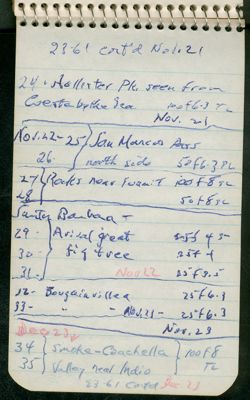 23-61 cont'd Nov. 21
24. Hollister Pk. seen from
Cuesta by the Sea 100 f 6.3 TL
Nov. 21
Nov. 22-25 San Marcos Pass
26. north side 50 f 6.3 PL
27 Rocks near summit 100 f 8 TL
28 50 f 8 SL
Santa Barbara -
29. great 25 f 4.5
30. fig tree 25 f 4
31. Nov 22 25 f 3.5
32- Bougainvillea 25 f 6.3
33- " " Nov. 21- 25 f 6.3
Nov. 23
Dec 23
34 Smoke-Coachella 100 f 8
35 Valley near Indio TL
23-61 cont'd Dec 23